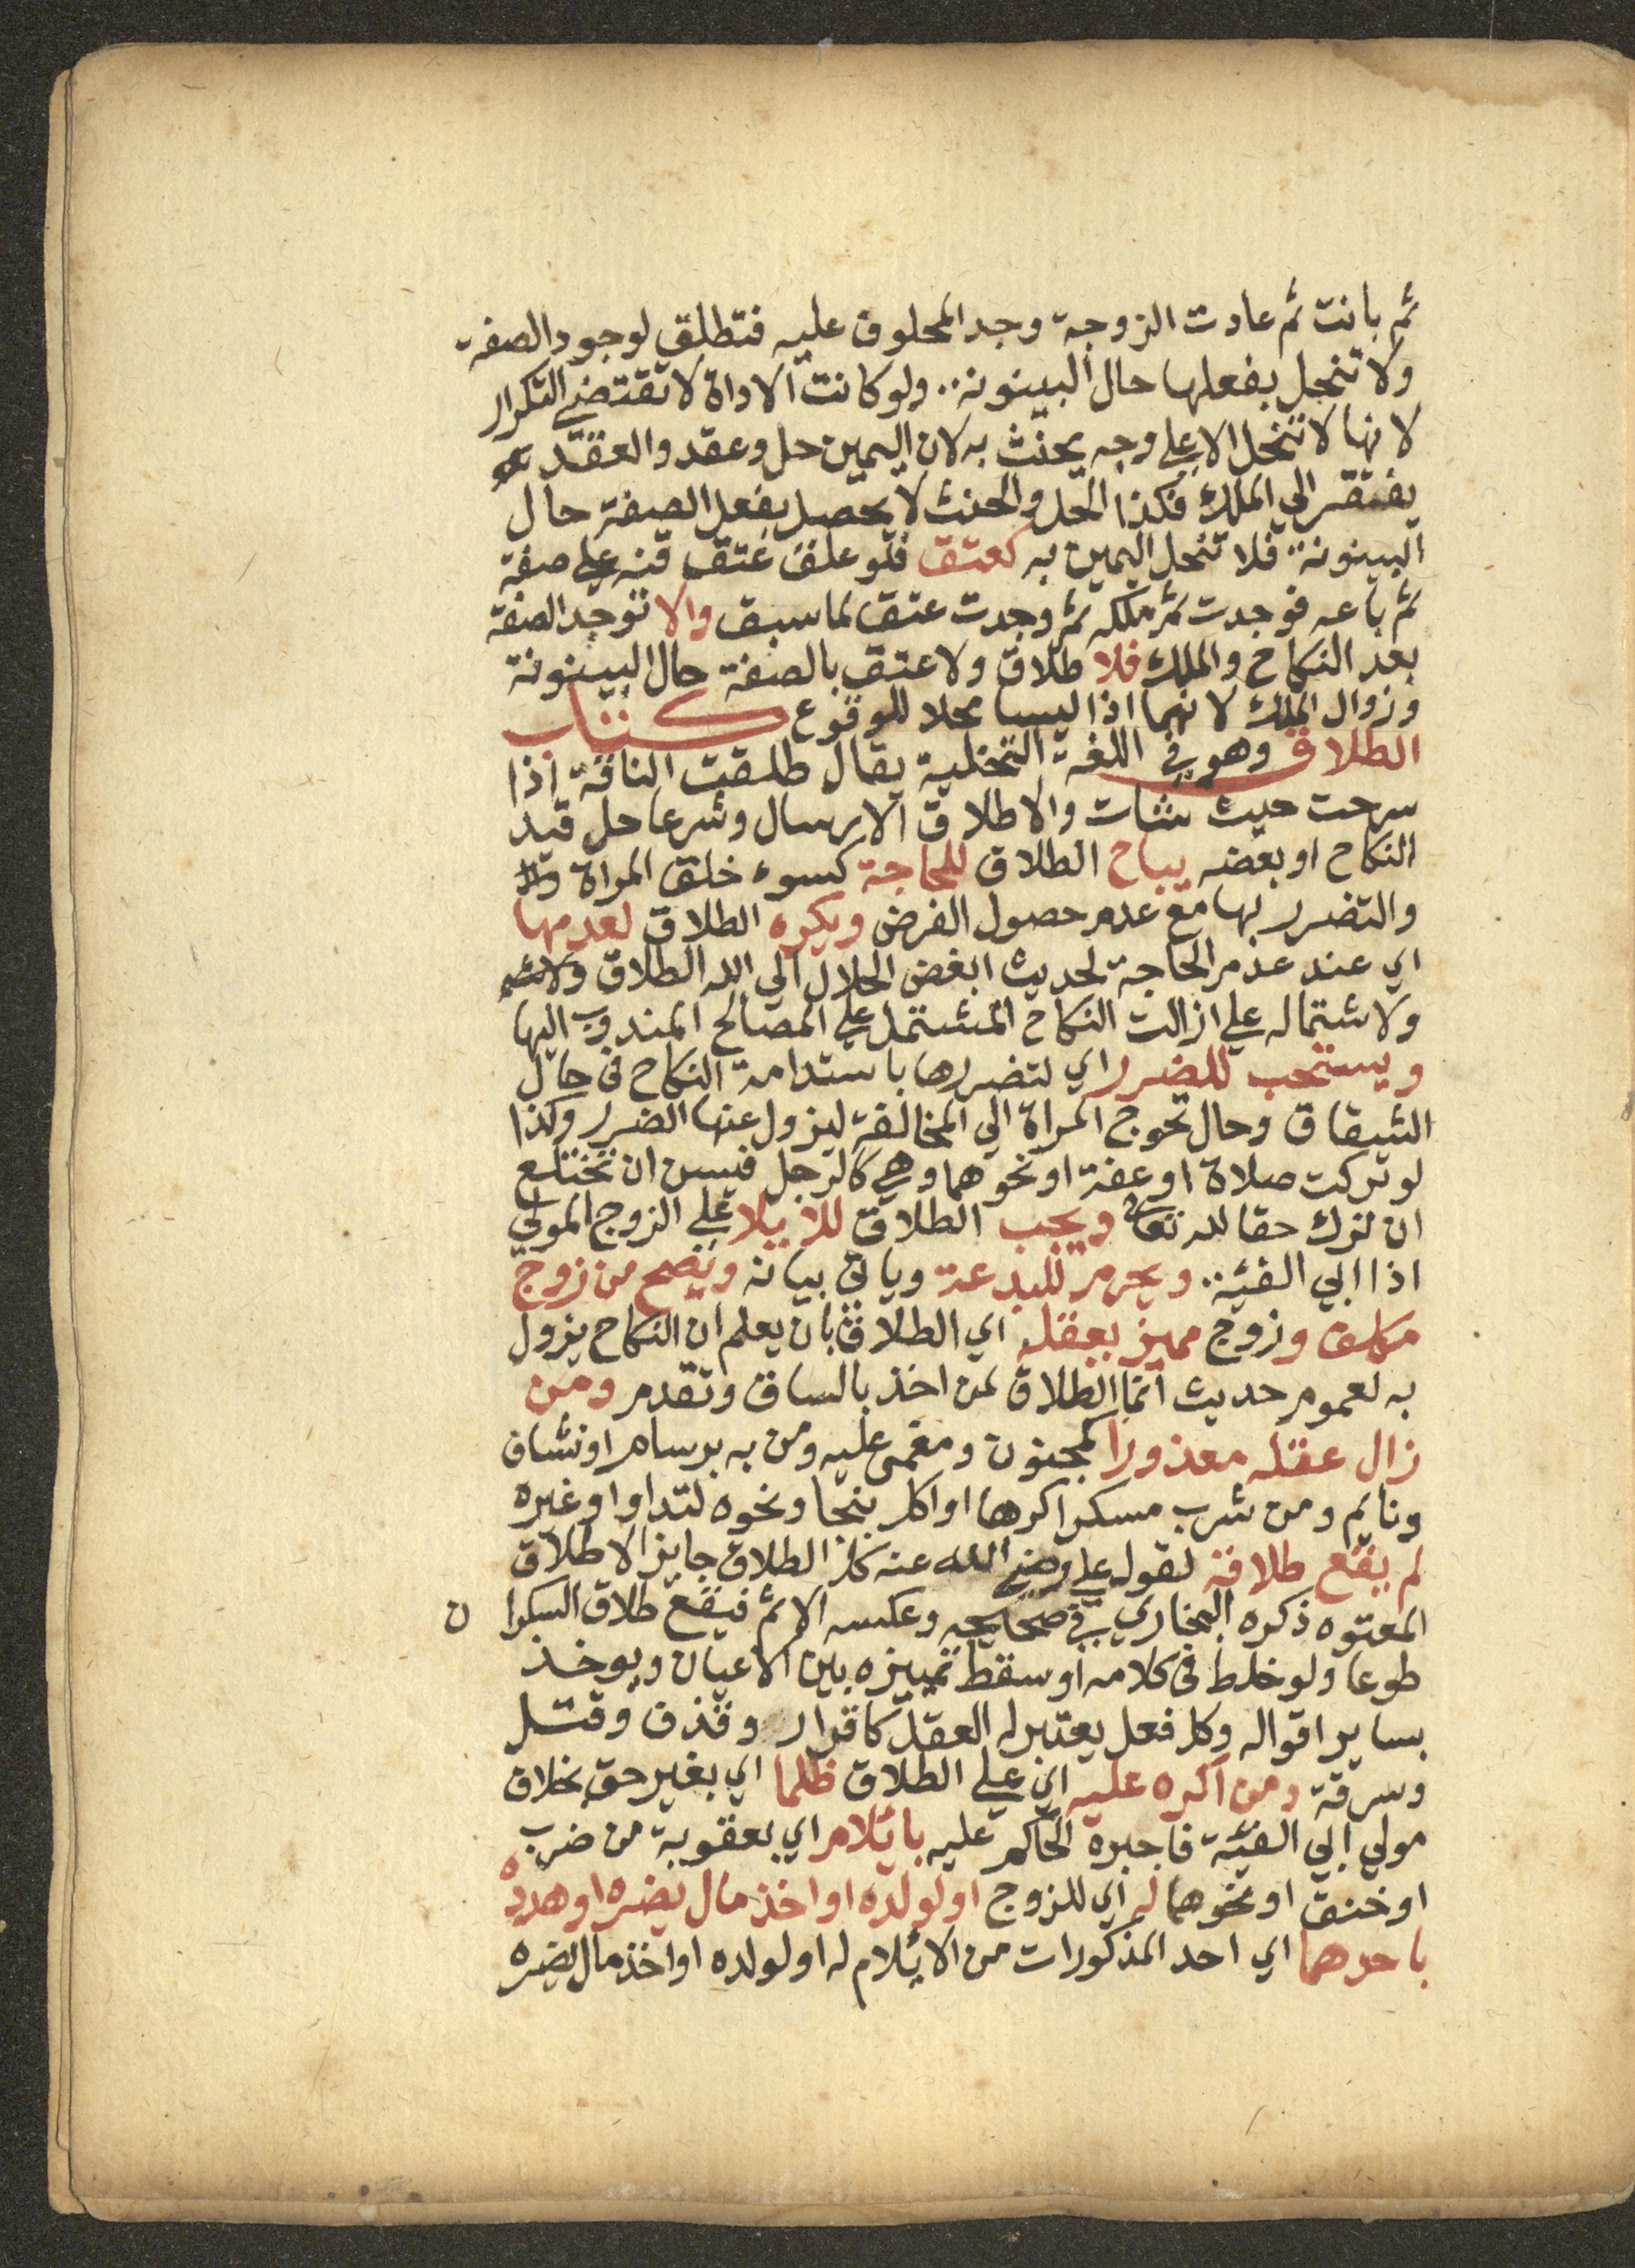 ثم بانت ثم عادت الزوجة وجد المحلوف عليه فتطلق لوجود الصفة
ولا تنحل بفعلها حال البينونة ولو كانت الاداة لا تقتضي التكرار
لانها لا تنحل الا على وجه يحنث به لان اليمين حل وعقد والعقد
يفتقر الي الملك فكذا الحل والحنث لا يحصل بفعل الصفة حال
البينونة فلا تنحل اليمين به كعتق فلو علق عتق قنه على صفة
ثم باعه فوجدت ثم ملكه ثم وجدت عتق لما سبق والا توجد الصفة
بعد النكاح والملك فلا طلاق ولا عتق بالصفة حال البينونة
وزوال الملك لانهما اذا ليسا محلا للوقوع كتاب
الطلاق وهو في اللغة التخلية يقال طلقت الناقة اذا
سرحت حيث شات والاطلاق الارسال وشرعا حل قيد
النكاح او بعضه يباح الطلاق للحاجة كسوء خلق المراة
والتضرر بها مع عدم حصول الغرض ويكره الطلاق لعدمها
اي عند عدم الحاجة لحديث ابغض الحلال الي الله الطلاق
ولاشتماله علي ازالت النكاح المشتمل علي المصالح المندوب اليها
ويستحب للضرر اي لتضررها باستدامة النكاح في حال
الشقاق وحال تحوج المراة الي المخالفة ليزول عنها الضرر وكذا
لو تركت صلاة او عفة او نحوهما وهي كالرجل فيسن ان تختلع
ان ترك حقا لله تعالى ويجب الطلاق للايلا علي الزوج المولي
اذا ابي الفيئة ويحرم للبدعة وياتي بيانه ويصح من زوج
مكلف وزوج مميز يعقله اي الطلاق بان يعلم ان النكاح يزول
به لعموم حديث انما الطلاق لمن اخذ بالساق وتقدم ومن
زال عقله معذورا كمجنون ومغمى عليه ومن به برسام او نشاف
ونايم ومن شرب مسكرا كرها او اكل بنجا ونحوه لتداوا وغيره
لم يقع طلاقه لقول علي رضي الله عنه كل الطلاق جايز الا طلاق
المعتوه ذكره البخاري في صحيحه وعكسه الاثم فيقع طلاق السكرا ن
طوعا ولو خلط في كلامه او سقط تمييزه بين الاعيان ويوخذ
بساير اقواله وكل فعل يعتبر له العقل كاقرار وقذف وقتل
وسرقة ومن اكره عليه اي علي الطلاق ظلما اي بغير حق بخلاف
مولي ابي الفيئة فاجبره الحاكم عليه بايلام اي بعقوبة من ضرب
او خنق او نحوهما له اي للزوج او لولده او اخذ مال يضره او هدده
باحدهما اي احد المذكورات من الايلام له او لولده او اخذ مال يضره